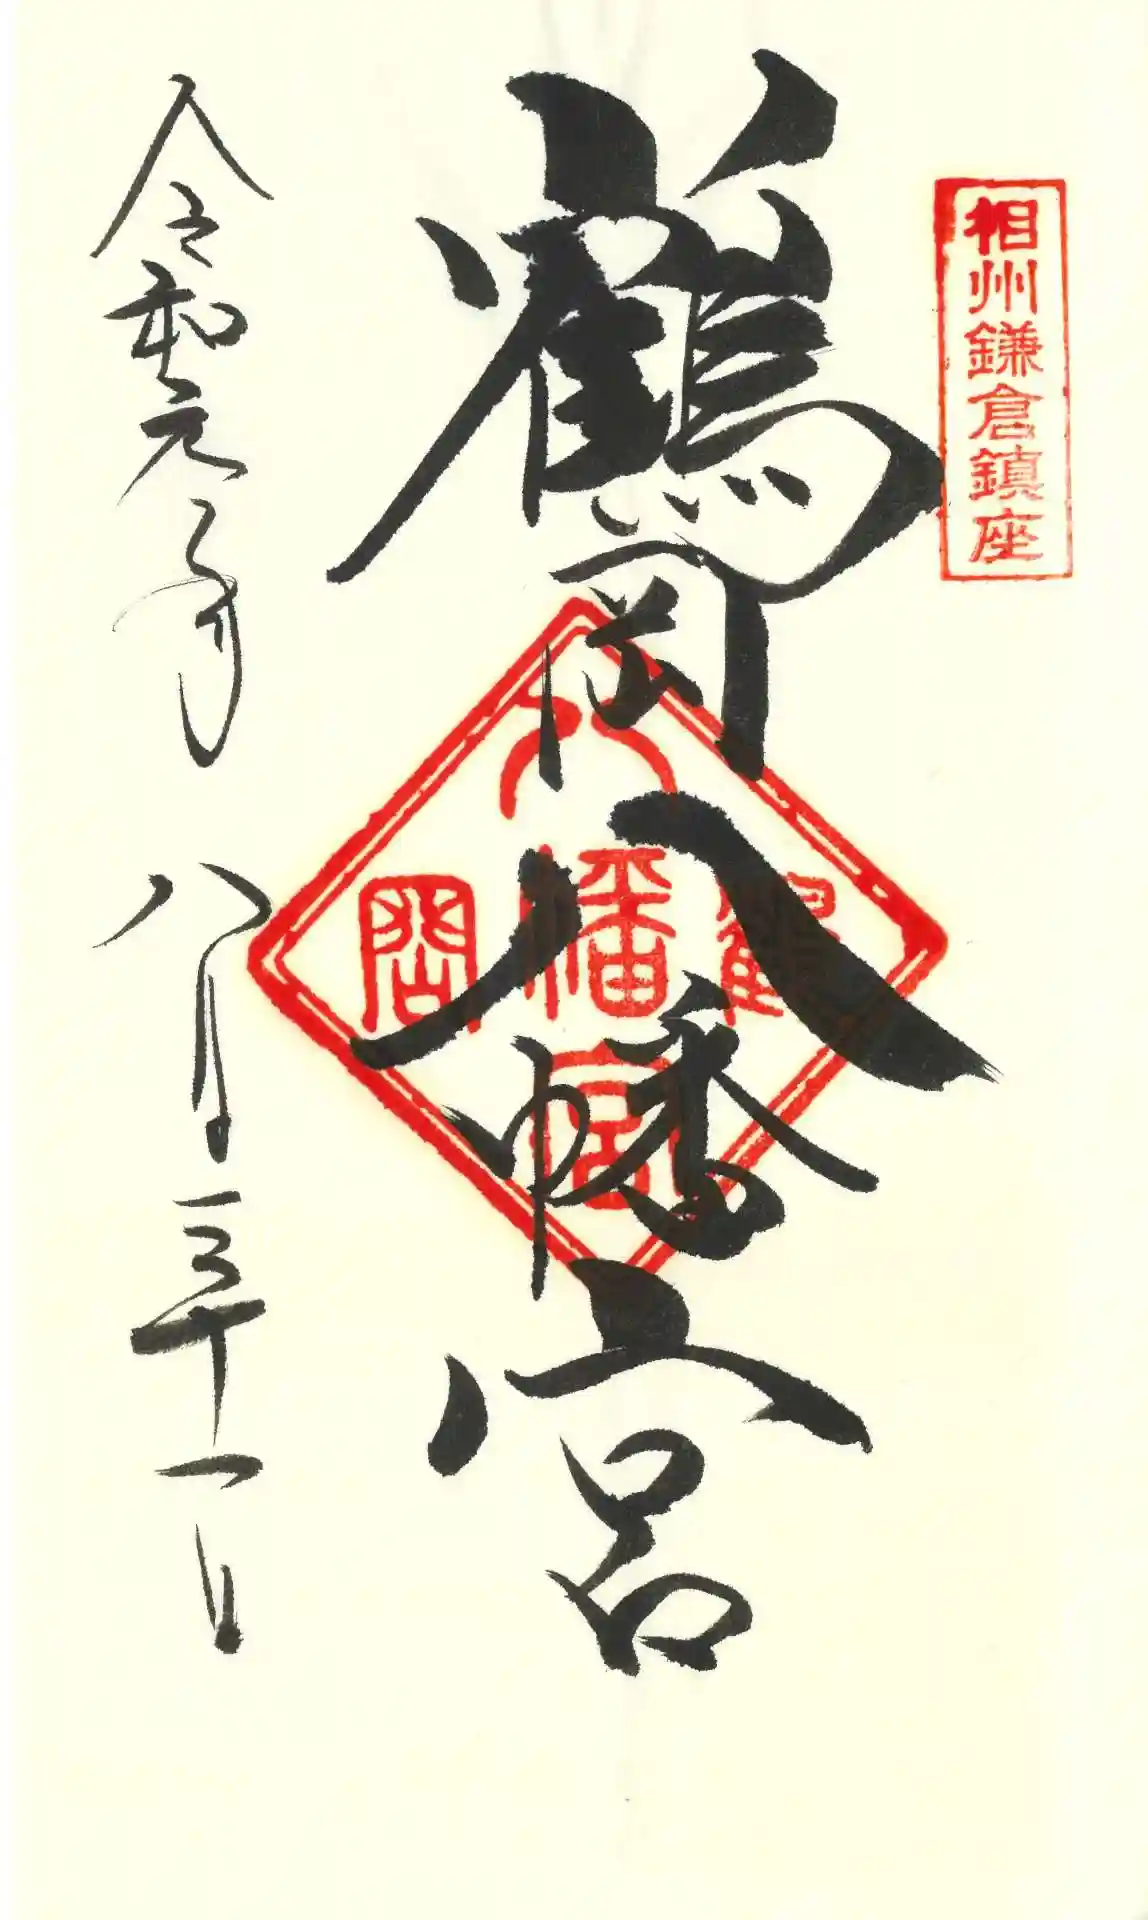 相州鎌倉鎮座
鶴岡八幡宮
八
鶴 幡 岡
宮
令和元年八月三十一日